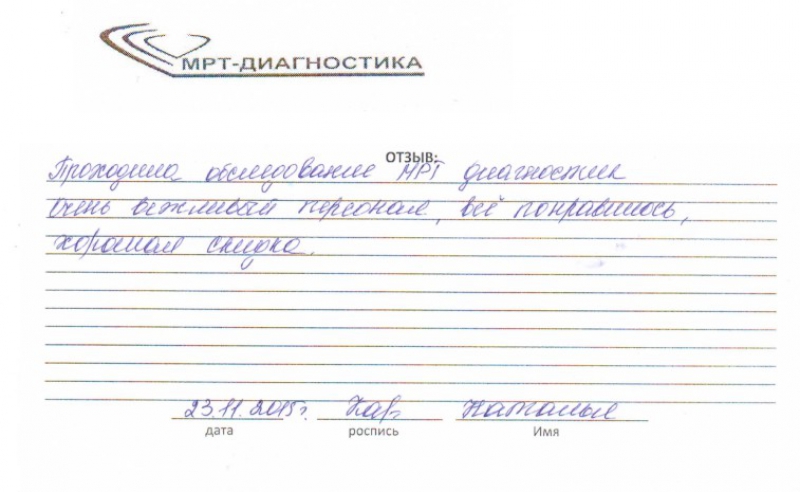 МРТ-ДИАГНОСТИКА
ОТЗЫВ:
Проходила обследование МРТ диагностик
очень вежливый персонал, всё понравилось,
хорошая скидка.
23.11.2015г. Нав Наталья
дата роспись Имя